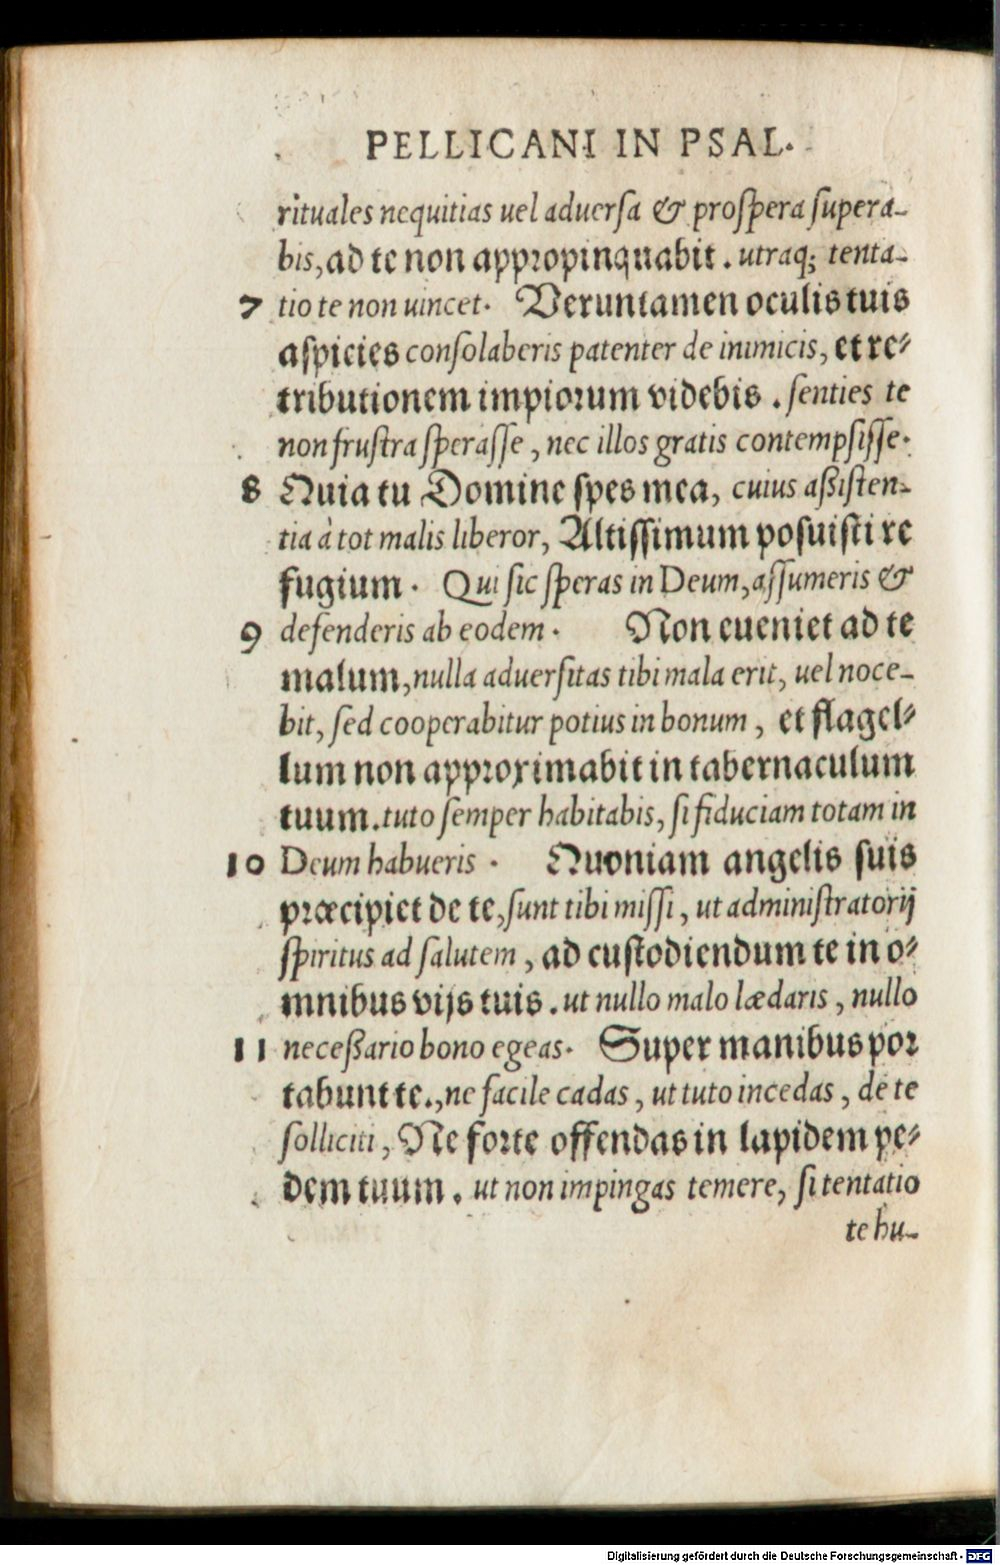 PELLICANI IN PSAL.
rituales nequitias uel aduersa & prospera supera-
bis, ad te non appropinquabit. utraq; tenta-
7 tio te non uincet. Veruntamen oculis tuis
aspicies consolaberis patenter de inimicis, et re-
tributionem impiorum videbis. senties te
non frustra sperasse, nec illos gratis contempsisse.
8 Quia tu Domine spes mea, cuius aßisten-
tia à tot malis liberor, Altissimum posuisti re
fugium. Qui sic speras in Deum, assumeris &
9 defenderis ab eodem. Non eueniet ad te
malum, nulla aduersitas tibi mala erit, uel noce-
bit, sed cooperabitur potius in bonum, et flagel-
lum non approximabit in tabernaculum
tuum. tuto semper habitabis, si fiduciam totam in
10 Deum habueris. Quoniam angelis suis
præcipiet de te, sunt tibi missi, ut administratorij
spiritus ad salutem, ad custodiendum te in o-
mnibus vijs tuis. ut nullo malo lædaris, nullo
11 neceßario bono egeas. Super manibus por
tabunt te., ne facile cadas, ut tuto incedas, de te
solliciti, Ne forte offendas in lapidem pe-
dem tuum. ut non impingas temere, si tentatio
te hu-
Digitalisierung gefördert durch die Deutsche Forschungsgemeinschaft - DFG